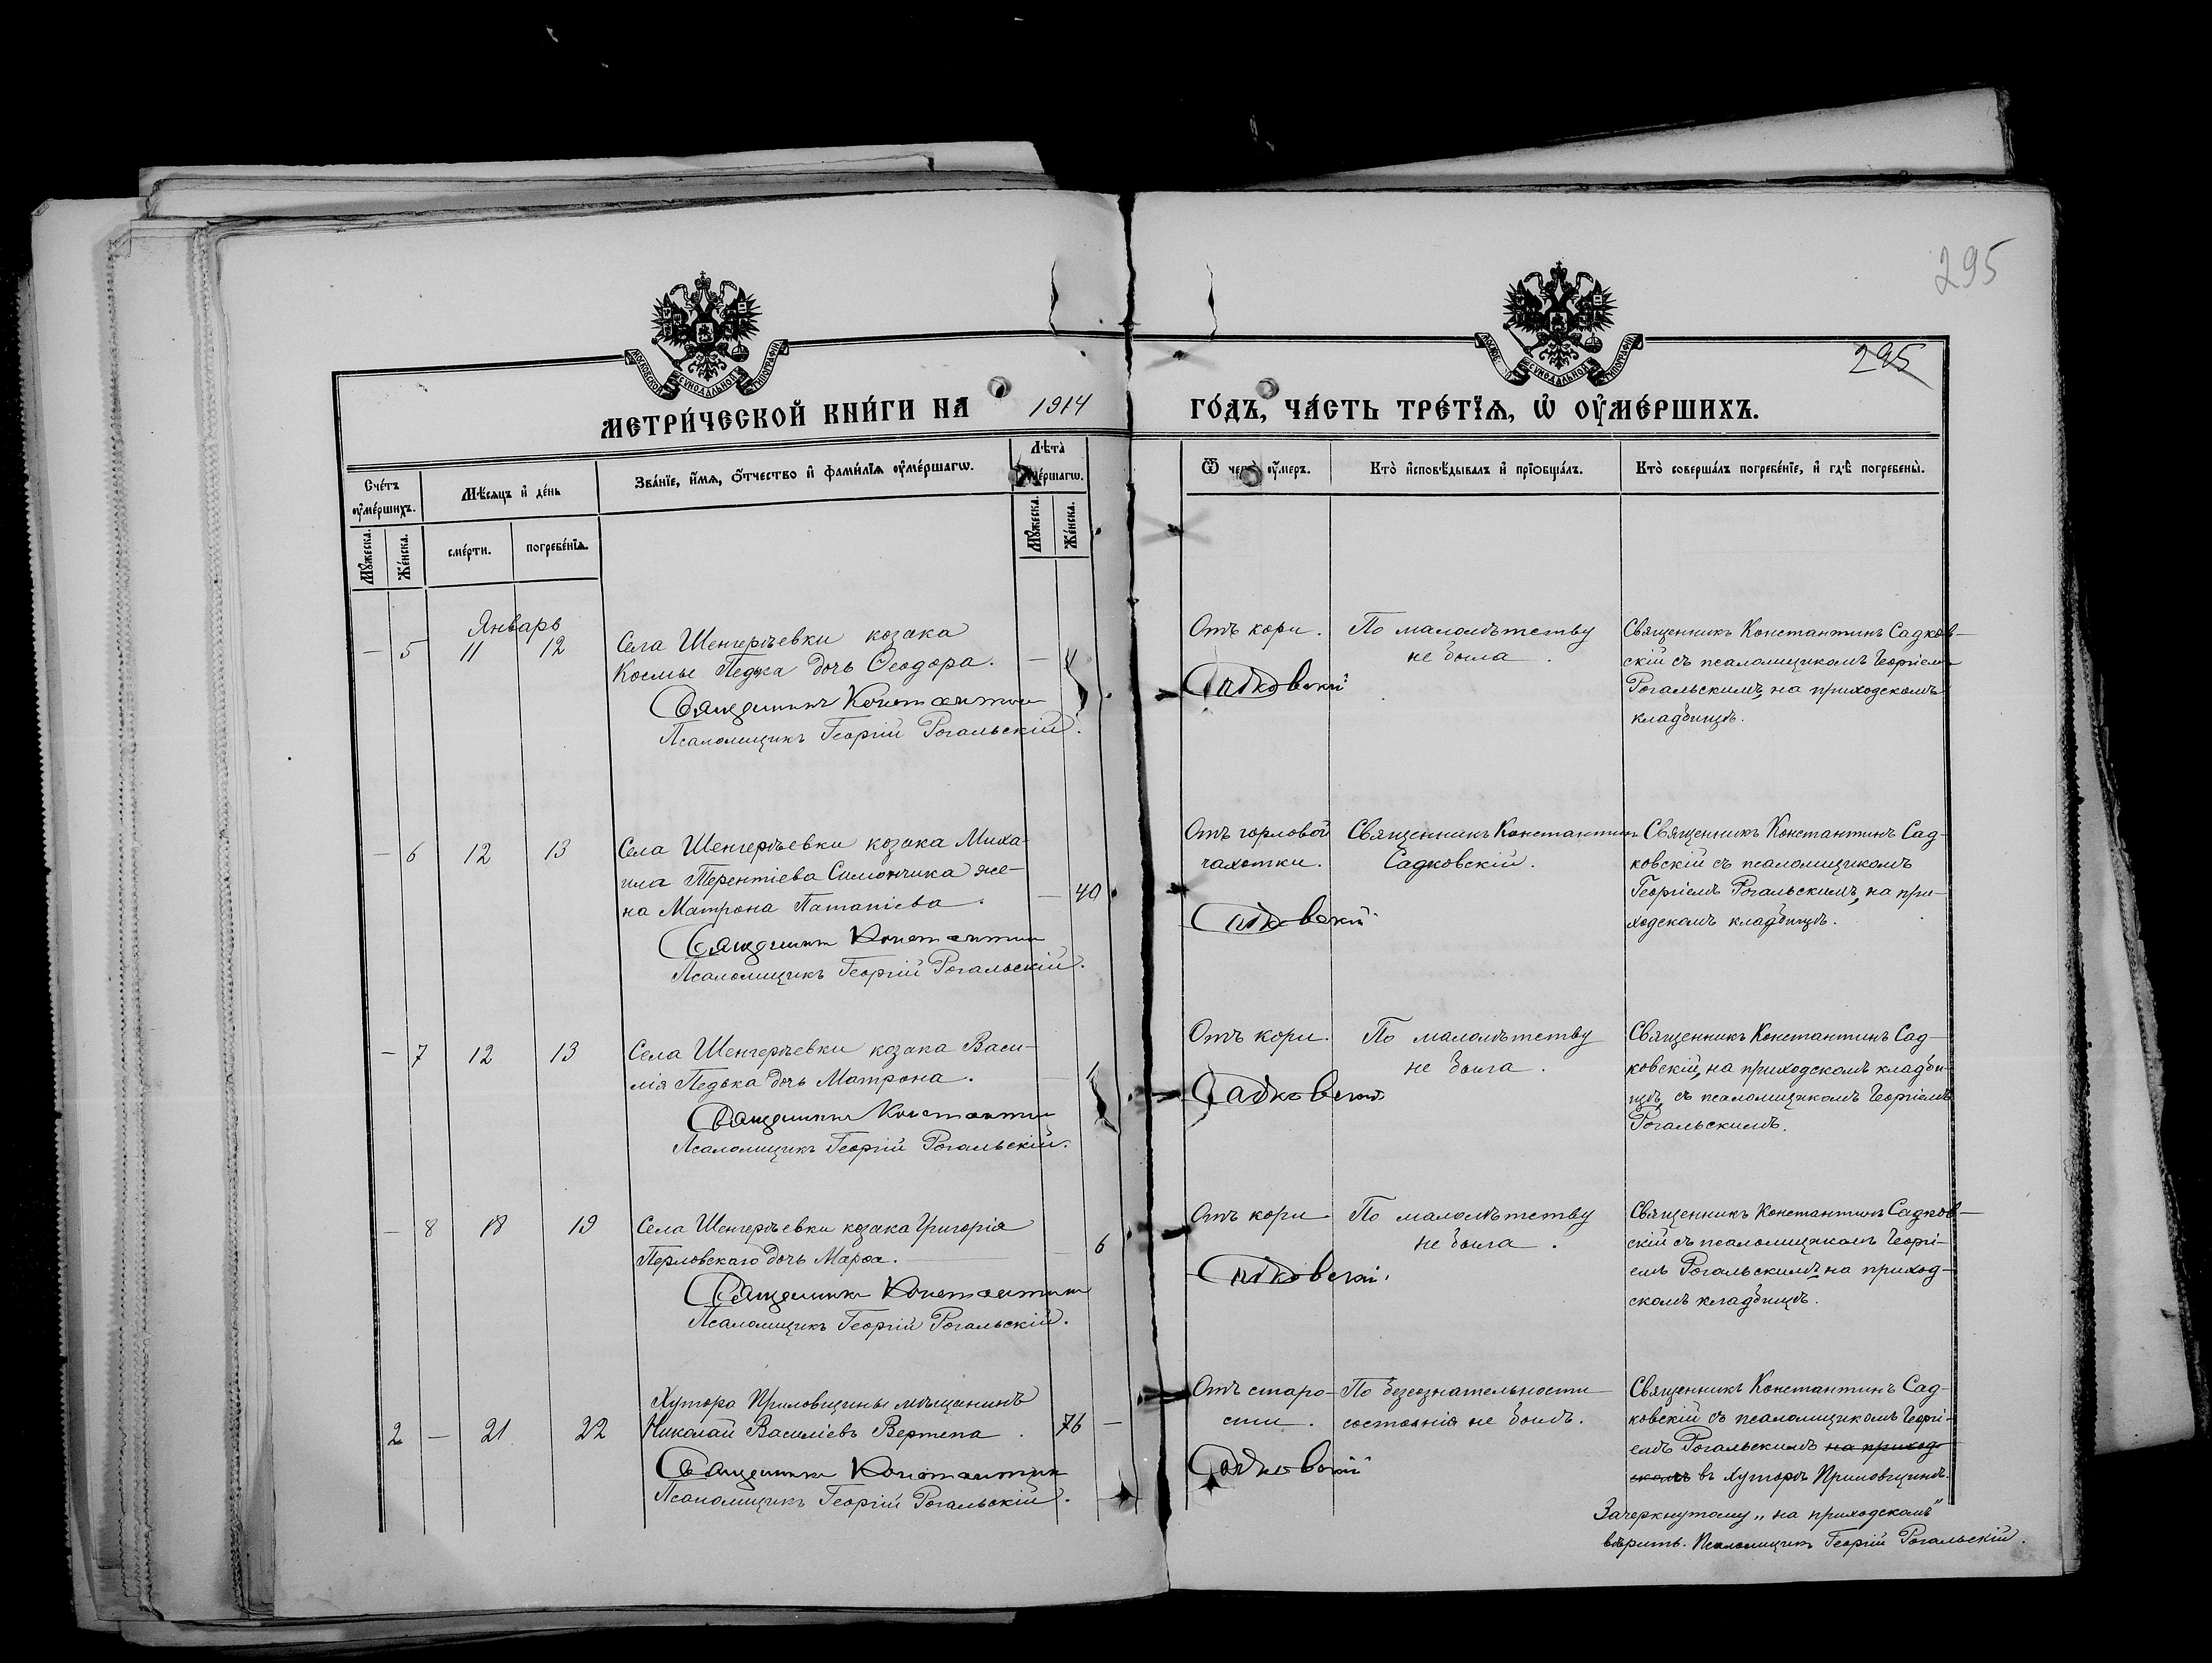 295
295
МЕТРИ́ЧЕСКОЙ КНИ́ГИ НА 1914 ГО́ДЪ, ЧА́СТЬ ТРЕ́ТЇѦ, Ѡ҆ ОУ҆МЕ́РШИХЪ.
Сче́тъ оу҆ме́ршихъ.
Мꙋ́жеска.
Же́нска.
Мѣ́сѧцъ и҆ де́нь
сме́рти.
погребе́нїѧ.
Зва́нїе, и҆́мѧ, ѻ҆́тчество и҆ фами́лїѧ оу҆ме́ршагѡ.
Лѣ́та̀ оу҆ме́ршагѡ.
Мꙋ́жеска.
Же́нска.
Ѿ чегѡ̀ оу҆́меръ.
Кто̀ и҆сповѣ́дывалъ и҆ прїѻбща́лъ.
Кто̀ соверша́лъ погребе́нїе, и҆ гдѣ̀ погребены̀.
Январь
— 5 11 12
Села Шенгерѣевки козака
Космы Педька дочь Ѳеодора. —
Священникъ Константин
Псаломщикъ Георгій Рогальскій.
Отъ кори.
Садковскій
По малолѣтству
не была.
Священникъ Константинъ Садков-
скій съ псаломщикомъ Георгіемъ
Рогальскимъ, на приходскомъ
кладбищѣ.
— 6 12 13
Села Шенгерѣевки козака Миха-
ила Терентіева Симончика же-
на Матрона Патапіева. — 40
Священникъ Константин
Псаломщикъ Георгій Рогальскій.
Отъ горловой
чахотки.
Садковскій
Священникъ Константинъ
Садковскій.
Священникъ Константинъ Сад-
ковскій съ псаломщикомъ
Георгіемъ Рогальскимъ, на при-
ходскомъ кладбищѣ.
— 7 12 13
Села Шенгерѣевки козака Васи-
лія Педька дочь Матрона. 1
Священникъ Константин
Псаломщикъ Георгій Рогальскій.
Отъ кори.
Садковскій
По малолѣтству
не была.
Священникъ Константинъ Сад-
ковскій, на приходскомъ кладби-
щѣ, съ псаломщикомъ Георгіемъ
Рогальскимъ.
— 8 18 19
Села Шенгерѣевки козака Григорія
Перловскаго дочь Марѳа. — 6
Священникъ Константин
Псаломщикъ Георгій Рогальскій.
Отъ кори
Садковскій.
По малолѣтству
не была.
Священникъ Константинъ Садков-
скій съ псаломщикомъ Георгі-
емъ Рогальскимъ, на приход-
скомъ кладбищѣ.
2 — 21 22
Хутора Примовщины мѣщанинъ
Николай Василіевъ Вертепа. 76 —
Священникъ Константин
Псаломщикъ Георгій Рогальскій.
Отъ старо-
сти.
Садковскій
По безсознательности
состоянія не былъ.
Священникъ Константинъ Сад-
ковскій съ псаломщикомъ Георгі-
емъ Рогальскимъ на приход-
скомъ въ хуторѣ Примовщинѣ.
Зачеркнутому „на приходскомъ"
вѣрить. Псаломщикъ Георгій Рогальскій.